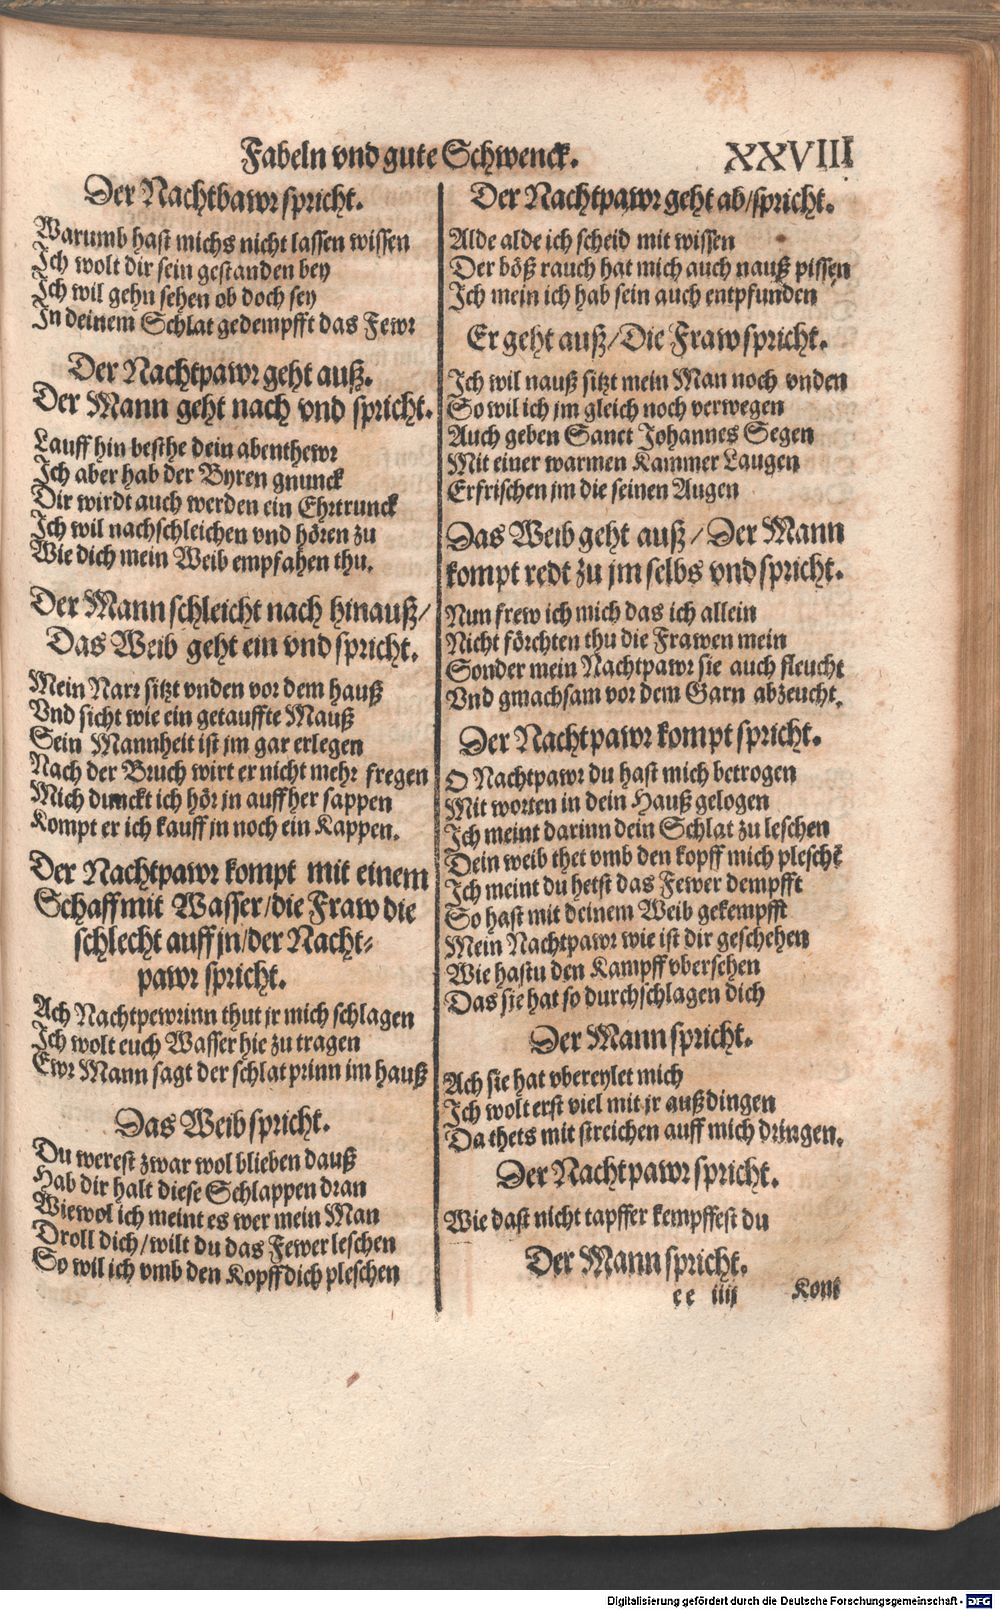 Fabeln vnd gute Schwenck. XXVIII
Der Nachtbawr spricht.
Warumb hast michs nicht lassen wissen
Ich wolt dir sein gestanden bey
Ich wil gehn sehen ob doch sey
In deinem Schlat gedempfft das Fewr
Der Nachtpawr geht auß.
Der Mann geht nach vnd spricht.
Lauff hin besthe dein abenthewr
Ich aber hab der Byren gnunck
Dir wirdt auch werden ein Ehrtrunck
Ich wil nachschleichen vnd hören zu
Wie dich mein Weib empfahen thu.
Der Mann schleicht nach hinauß/
Das Weib geht ein vnd spricht.
Mein Narr sitzt vnden vor dem hauß
Vnd sicht wie ein getauffte Mauß
Sein Mannheit ist jm gar erlegen
Nach der Bruch wirt er nicht mehr fregen
Mich dunckt ich hör jn auff her sappen
Kompt er ich kauff jn noch ein Kappen.
Der Nachtpawr kompt mit einem
Schaff mit Wasser/die Fraw die
schlecht auff jn/der Nacht-
pawr spricht.
Ach Nachtpewrinn thut jr mich schlagen
Ich wolt euch Wasser hie zu tragen
Ewr Mann sagt der schlat prinn im hauß
Das Weib spricht.
Du werest zwar wol blieben dauß
Hab dir halt diese Schlappen dran
Wiewol ich meint es wer mein Man
Droll dich/wilt du das Fewer leschen
So wil ich vmb den Kopff dich pleschen
Der Nachtpawr geht ab/spricht.
Alde alde ich scheid mit wissen
Der böß rauch hat mich auch nauß pissen
Ich mein ich hab sein auch entpfunden
Er geht auß/Die Fraw spricht.
Ich wil nauß sitzt mein Man noch vnden
So wil ich jm gleich noch verwegen
Auch geben Sanct Johannes Segen
Mit einer warmen Kammer Laugen
Erfrischen jm die seinen Augen
Das Weib geht auß/Der Mann
kompt redt zu jm selbs vnd spricht.
Nun frew ich mich das ich allein
Nicht förchten thu die Frawen mein
Sonder mein Nachtpawr sie auch fleucht
Vnd gmachsam vor dem Garn abzeucht.
Der Nachtpawr kompt spricht.
O Nachtpawr du hast mich betrogen
Mit worten in dein Hauß gelogen
Ich meint darinn dein Schlat zu leschen
Dein weib thet vmb den kopff mich pleschē
Ich meint du hetst das Fewer dempfft
So hast mit deinem Weib gekempfft
Mein Nachtpawr wie ist dir geschehen
Wie hastu den Kampff vbersehen
Das sie hat so durchschlagen dich
Der Mann spricht.
Ach sie hat vbereylet mich
Ich wolt erst viel mit jr außdingen
Da thets mit streichen auff mich dringen.
Der Nachtpawr spricht.
Wie dast nicht tapffer kempffest du
Der Mann spricht.
ee iiij Kont
Digitalisierung gefördert durch die Deutsche Forschungsgemeinschaft - DFG